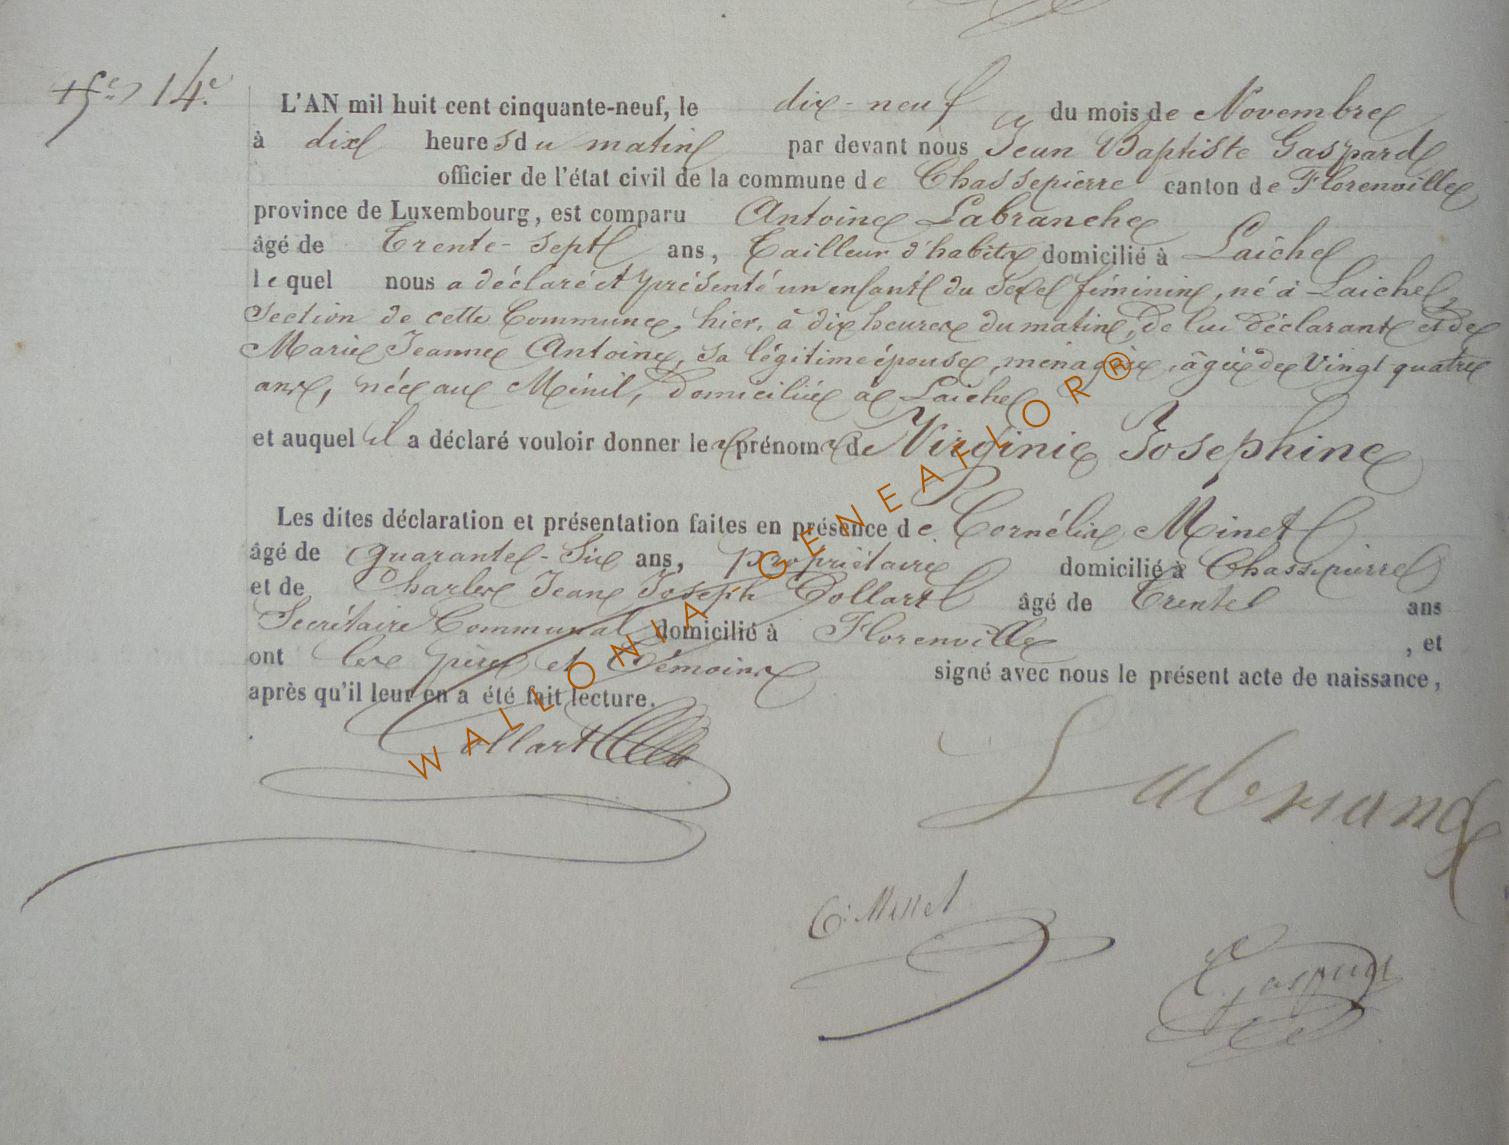 14.e
L'AN mil huit cent cinquante-neuf, le dix-neuf du mois de Novembre
à dix heures du matin par devant nous Jean Baptiste Gaspard
officier de l'état civil de la commune de Chassepierre canton de Florenville
province de Luxembourg, est comparu Antoine Labranche
âgé de Trente-sept ans, Tailleur d'habits domicilié à Laiche
lequel nous a déclaré et présenté un enfant du sexe féminin, né à Laiche,
Section de cette Commune, hier, à dix heures du matin, de lui déclarant et de
Marie Jeanne Antoine, sa légitime épouse, ménagère, âgée de Vingt quatre
ans, née aux Ménil, domiciliée à Laiche
et auquel il a déclaré vouloir donner les prénoms de Virginie Josephine
Les dites déclaration et présentation faites en présence de Cornélis Minet
âgé de quarante-six ans, propriétaire domicilié à Chassepierre
et de Charles Jean Joseph Collart âgé de Trente ans
Secrétaire Communal domicilié à Florenville, et
ont les père et témoins signé avec nous le présent acte de naissance,
après qu'il leur en a été fait lecture.
Collart
Labranche
C. Minet
Gaspard
WALLONIA GENEAFLOR®